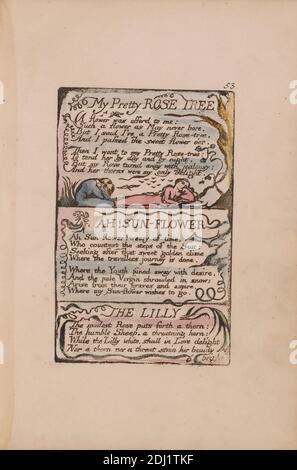 53
My Pretty ROSE TREE
A flower was offerd to me:
Such a flower as May never bore.
But I said I've a Pretty Rose-tree,
And I passed the sweet flower o'er.
Then I went to my Pretty Rose-tree:
To tend her by day and by night.
But my Rose turnd away with jealousy:
And her thorns were my only delight.
AH! SUN-FLOWER
Ah Sun-flower! weary of time,
Who countest the steps of the Sun:
Seeking after that sweet golden clime
Where the travellers journey is done.
Where the Youth pined away with desire,
And the pale Virgin shrouded in snow:
Arise from their graves and aspire,
Where my Sun-flower wishes to go.
THE LILLY
The modest Rose puts forth a thorn:
The humble Sheep, a threatning horn:
While the Lilly white, shall in Love delight,
Nor a thorn nor a threat stain her beauty
bright
alamy
Image ID: 2DJ1TKF
www.alamy.com